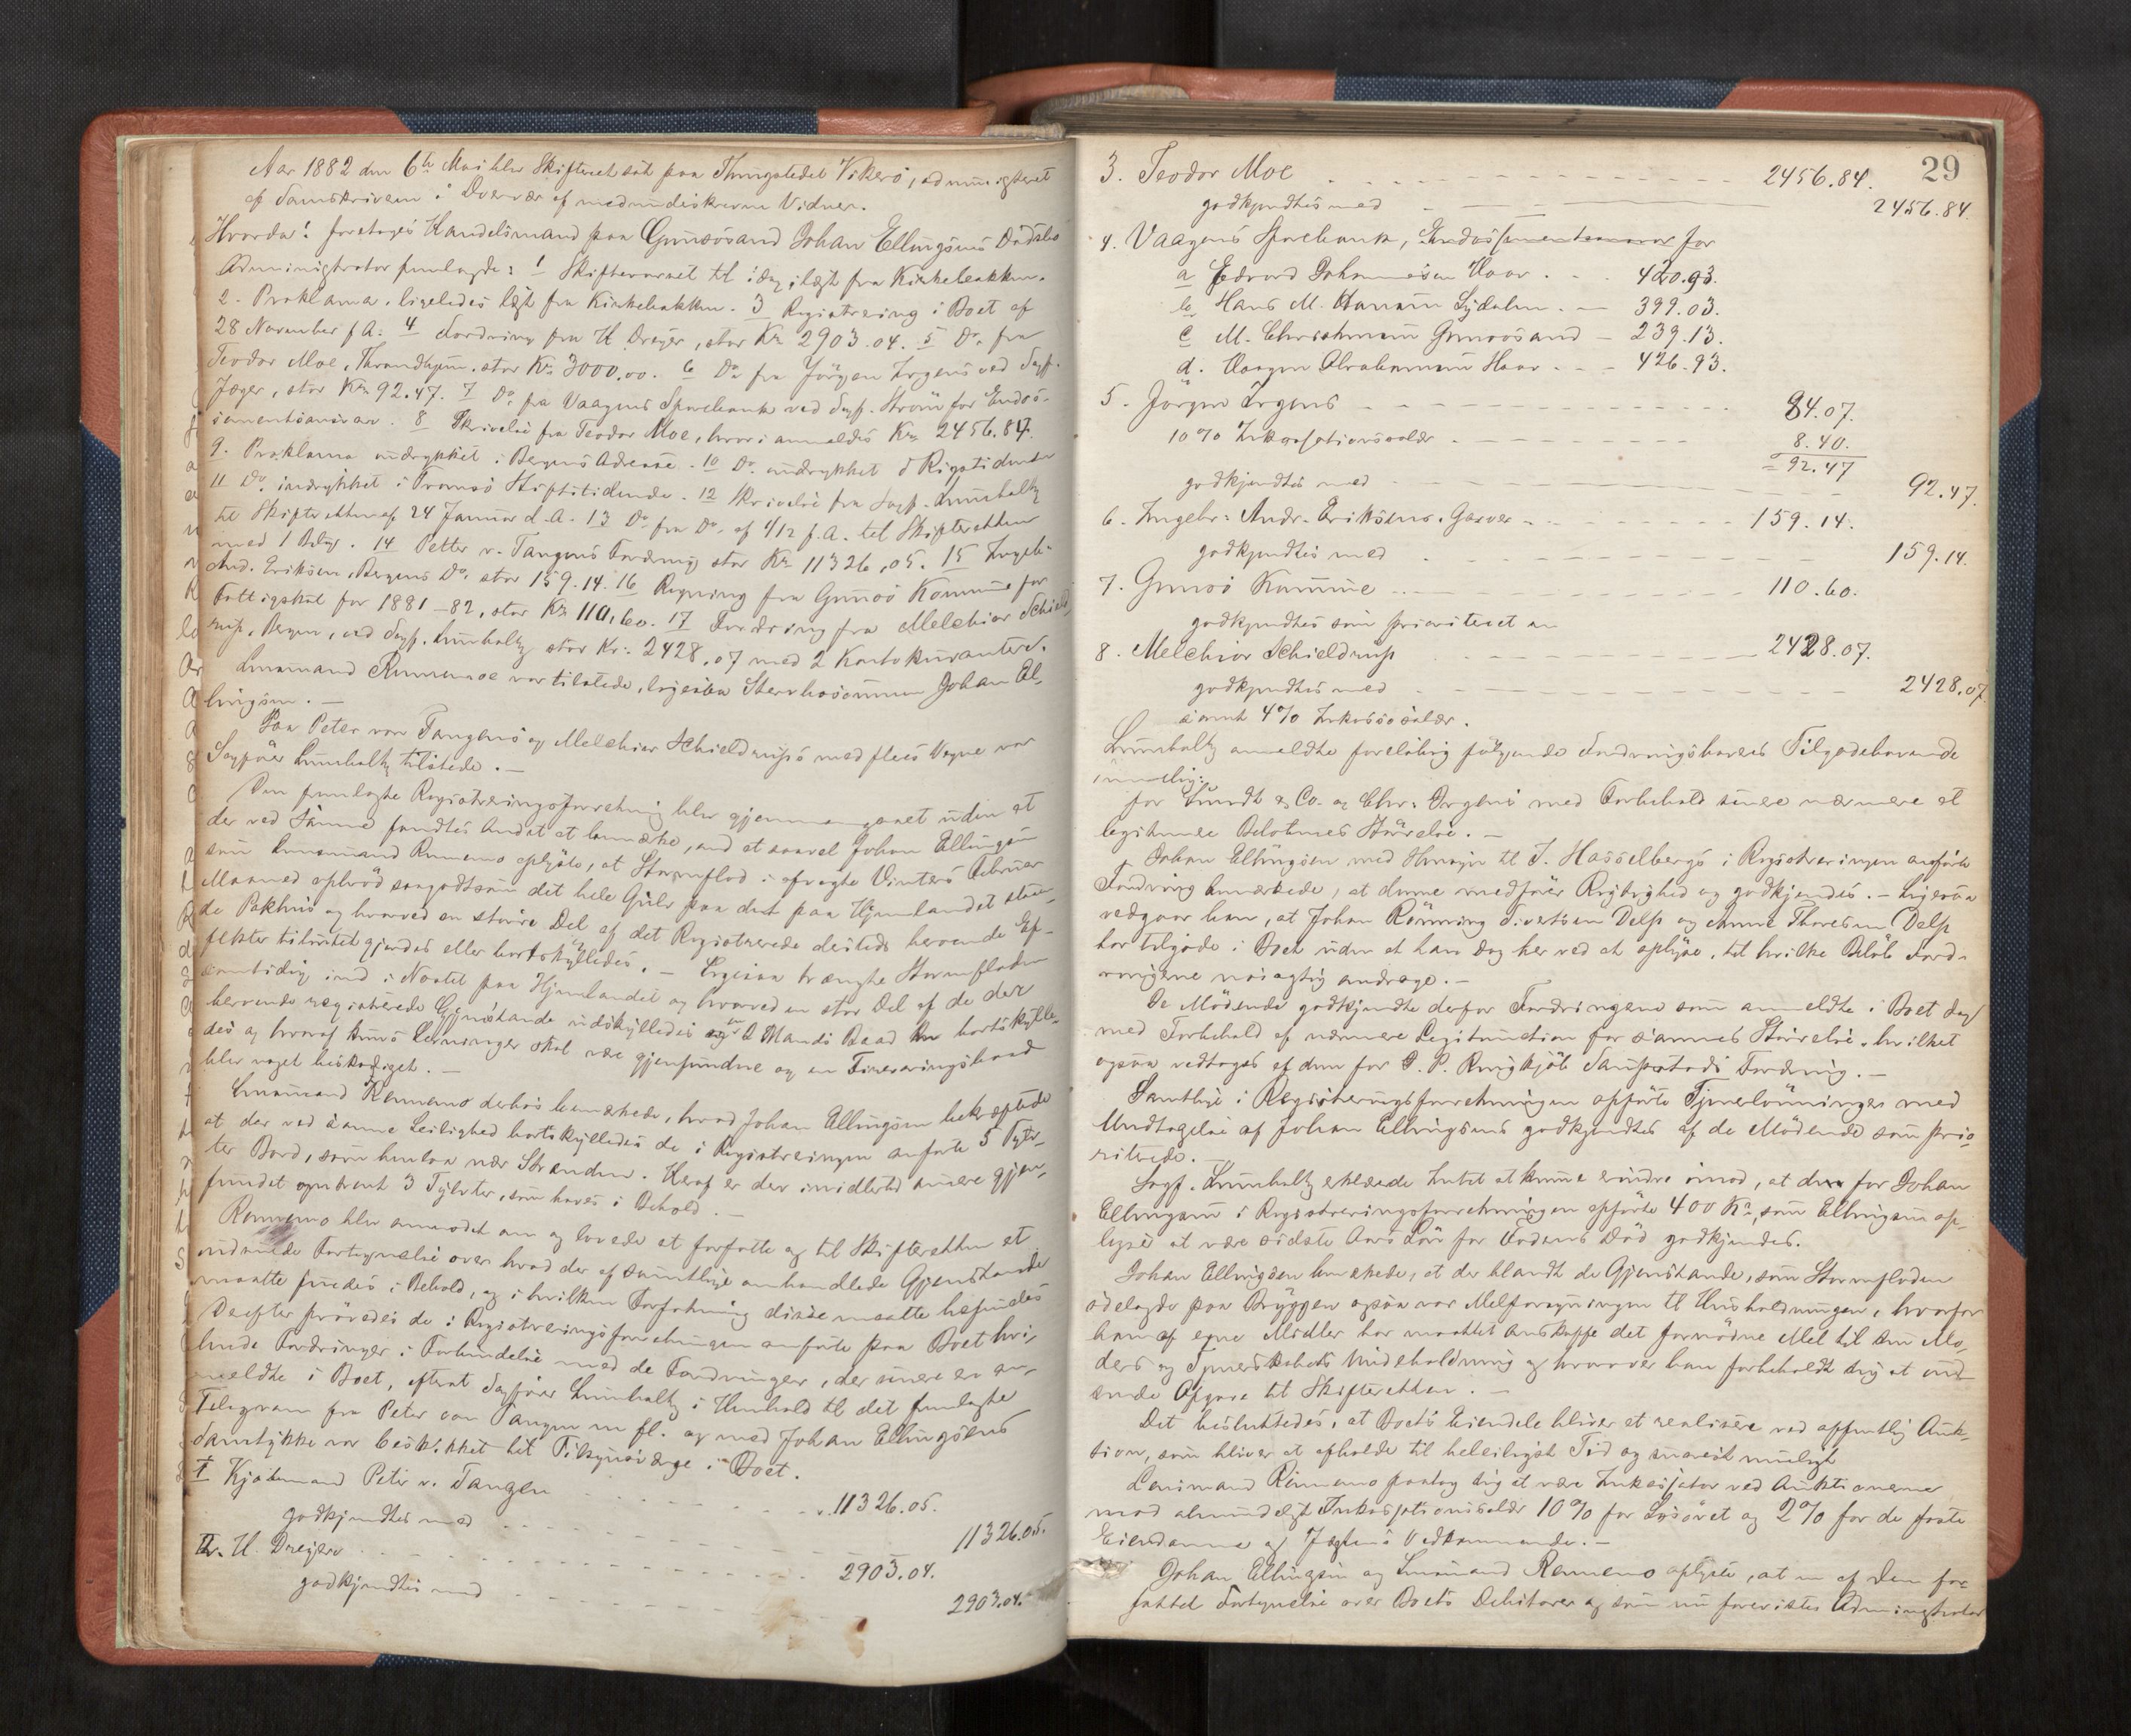 Aar 1882 den 6te Mai blev Skifteret sat paa Thingstedet Vikerö, administreret
af Sorenskriveren i Overvær af medundeskrevne Vidner.
Hvorda! foretoges Handelsmand paa Gimsösand Johan Ellingsens Dødsbo
Administrator fremlagde: 1 Skiftevarsel til idag, læst fra Kirkebakken.
2. Proklama, ligeledes læst fra Kirkebakken. 3 Registrering i Boet af
28 November f. A. 4 Fordring fra H. Dreyer, stor Kr. 2903.04. 5 Do. fra
Teodor Moe, Throndhjem, stor Kr. 3000,00. 6 Do fra Jörgen Irgens ved Sagf.
Jæger, stor Kr. 92.47. 7 Do. fra Vaagens Sparebank ved Sagf. Ström for Endos-
sementsansvar. 8 Skrivelse fra Teodor Moe, hvori anmeldes Kr. 2456.84.
9. Proklama indrykket i Bergens Adresse. 10 Do. indrykket i Rigstidende
11 Do. indrykket i Tromsö Stiftstidende. 12 Skrivelse fra Sagf. Lumholtz
til Skifteretten af 24 Januar d. A. 13 Do. fra Do. af 4/12 f. A. til Skifteretten
med 1 Bilag. 14 Petter v. Tangens Fordring stor Kr. 11326,05. 15 Ingebr.
And. Eriksen, Bergens Do. stor 159.14. 16 Regning fra Gimsö Kommune for
Fattigskat for 1881-82, stor Kr. 110,60. 17 Fordring fra Melchior Schield-
rup, Bergen, ved Sagf. Lumholtz stor Kr. 2428,07 med 2 Kontokuranter.
Lensmand Rennemo var tilstede, ligesaa Stervbosönnen Johan El-
lingsen.
Paa Peter von Tangens og Melchior Schieldrups med fleres Vegne var
Sagfører Lumholtz tilstede.
Den fremlagte Registreringsforretning blev gjennemgaaet uden at
der ved samme fandtes Andet at bemærke, end at saavel Johan Ellingsen
som Lensmand Rennemo oplyste, at Stormflod i afvigte Vinters Februar
Maaned opbröd saagodtsom det hele Gulv paa det paa Hjemlandet staaen-
de Pakhus og hvorved en större Del af det Registrerede desteds beroende Ef-
fekter tilintetgjordes eller bortskylledes. Ligesaa trængte Stormfloden
samtidig ind i Naatet paa Hjemlandet og hvorved en stor Del af de der
beroende registrerede Gjenstande udskylledes og 2 Mands Baad bortskylle-
des og hvoraf kuns Levninger skal være gjenfundne og en Fireroringsbaad
blev noget beskadiget.
Lensmand Rennemo derhos bemærkede, hvad Johan Ellingsen bekræftede
at der ved samme Leilighed bortskylledes de i Registreringen anførte 5 Tylv-
ter Bord, som henlaa nær Stranden. Heraf er der imidlertid senere gjen-
fundet omtrent 3 Tylvter, som haves i Behold.
Rennemo blev anmodet om og lovede at forfatte og til Skifteretten at
indsende Fortegnelse over hvad der af samtlige omhandlede Gjenstande
maatte findes i Behold, og i hvilken Forfatning disse maatte befindes
Derefter prövedes de i Registreringsforretningen anførte paa Boet hvi-
lende Fordringer i Forbindelse med de Fordringer, der senere er an-
meldte i Boet, efterat Sagfører Lumholtz i Henhold til det fremlagte
Telegram fra Peter von Tangen m fl. og med Johan Ellingsens
Samtykke var beskikket til Tilsynsværge i Boet.
1 Kjöbmand Peter v. Tangen 11326.05.
godkjendtes med 11326.05.
2. H. Dreyer 2903.04.
godkjendtes med 2903.04.
29
3. Teodor Moe 2456.84.
godkjendtes med 2456.84.
4. Vaagens Sparebank, Endossementsansvar for
a Edvard Johannesen Hoor 420.93.
b Hans M. Hansen Lydalen 399.03.
c M. Christensen Gimsösand 239.13.
d. Vaagen Abrahamsen Hoor 426.93.
5. Jörgen Irgens 84.07.
10% Inkassationssalær 8.40.
= 92.47
godkjendtes med 92.47.
6. Ingebr. Andr. Eriksens. Garver 159.14.
godkjendtes med 159.14.
7. Gimsö Kommune 110.60.
godkjendtes som prioriteret
8. Melchior Schieldrup 2428.07.
godkjendtes med 2428.07
samt 4% Inkassosalær.
Lumholtz anmeldte foreløbig følgende Fordringshaveres Tilgodehavende
nemlig:
for Lundt & Co. og Chr. Irgens med Forbehold senere nærmere at
legitimere Beløbenes Størrelse.
Johan Ellingsen med Hensyn til J. Hasselbergs i Registreringen anførte
Fordring bemærkede, at denne medfører Rigtighed og godkjendes. Ligesaa
vedgaar han, at Johan Rönning Sivertsen Delp og Anne Thoresen Delp
har tilgode i Boet uden at han dog her ved at oplyse, til hvilke Beløb Ford-
ringerne nöiagtig andrage.
De Mødende godkjendte derfor Fordringene som anmeldte i Boet dog
med Forbehold af nærmere Legitimation for sammes Størrelse, hvilket
ogsaa vedtoges af dem for J. P. Ringkjöb Fordring.
Samtlige i Registreringsforretningen opførte Tjenerlönninger med
Undtagelse af Johan Ellingsens godkjendtes af de Mødende som prio-
riterede.
Sagf. Lumholtz erklærede Intet at kunne erindre imod, at den for Johan
Ellingsen i Registreringsforretningen opførte 400 Kr., som Ellingsen op-
lyser at være sidste Aars Lön før Faderens Död godkjendes.
Johan Ellingsen bemærkede, at der blandt de Gjenstande, som Stormfloden
ödelagde paa Bryggen ogsaa var Melforsyningen til Husholdningen, hvorfor
han af egne Midler har maattet anskaffe det fornödne Mel til sin Mo-
ders og Tjenerskabets Underholdning og hvorover han forbeholdt sig at ind-
sende Opgave til Skifteretten.
Det besluttedes, at Boets Eiendele bliver at realisere ved offentlig Auk-
tion, som bliver at afholde til beleiligst Tid og snarest muligt
Lensmand Rennemo paatog sig at være Inkassator ved Auktionerne
mod almindeligt Inkassationssalær 10% for Lösöret og 2% for de faste
Eiendomme og Jægtens Vedkommende.
Johan Ellingsen og Lensmand Rennemo oplyste, at en af dem for-
fattet Fortegnelse over Boets Debitorer og som nu forevistes Administrator